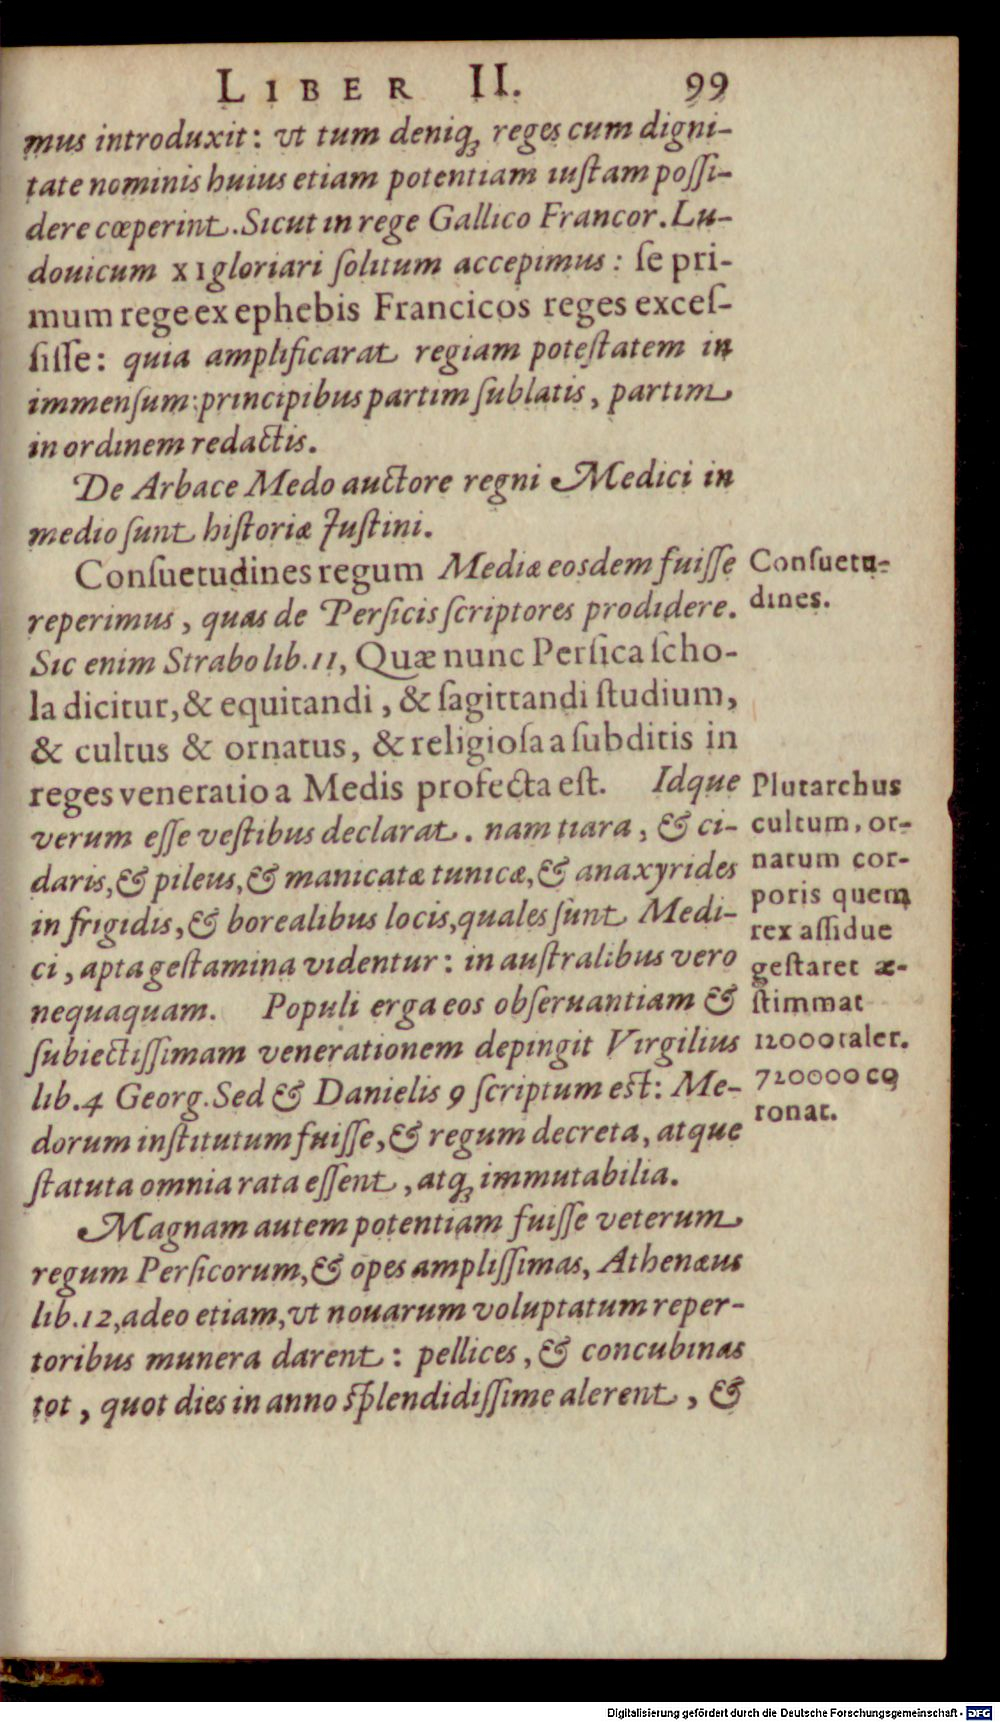 LIBER II. 99
mus introduxit: vt tum deniq́ꝫ reges cum digni-
tate nominis huius etiam potentiam iustam possi-
dere cœperint. Sicut in rege Gallico Francor. Lu-
douicum XI gloriari solitum accepimus: se pri-
mum rege ex ephebis Francicos reges exces-
sisse: quia amplificarat regiam potestatem in
immensum: principibus partim sublatis, partim
in ordinem redactis.
De Arbace Medo auctore regni Medici in
medio sunt historiæ Justini.
Consuetudines regum Mediæ eosdem fuisse
reperimus, quas de Persicis scriptores prodidere.
Sic enim Strabo lib. 11, Quæ nunc Persica scho-
la dicitur, & equitandi, & sagittandi studium,
& cultus & ornatus, & religiosa a subditis in
reges veneratio a Medis profecta est. Idque
verum esse vestibus declarat. nam tiara, & ci-
daris, & pileus, & manicatæ tunicæ, & anaxyrides
in frigidis, & borealibus locis, quales sunt Medi-
ci, apta gestamina videntur: in australibus vero
nequaquam. Populi erga eos obseruantiam &
subiectissimam venerationem depingit Virgilius
lib. 4 Georg. Sed & Danielis 9 scriptum est: Me-
dorum institutum fuisse, & regum decreta, atque
statuta omnia rata essent, atqꝫ immutabilia.
Magnam autem potentiam fuisse veterum
regum Persicorum, & opes amplissimas, Athenæus
lib. 12, adeo etiam, vt nouarum voluptatum reper-
toribus munera darent: pellices, & concubinas
tot, quot dies in anno splendidissime alerent, &
Consuetu-
dines.
Plutarchus
cultum, or-
natum cor-
poris quem
rex assidue
gestaret æ-
stimmat
12000 taler.
720000 co
ronat.
Digitalisierung gefördert durch die Deutsche Forschungsgemeinschaft - DFG